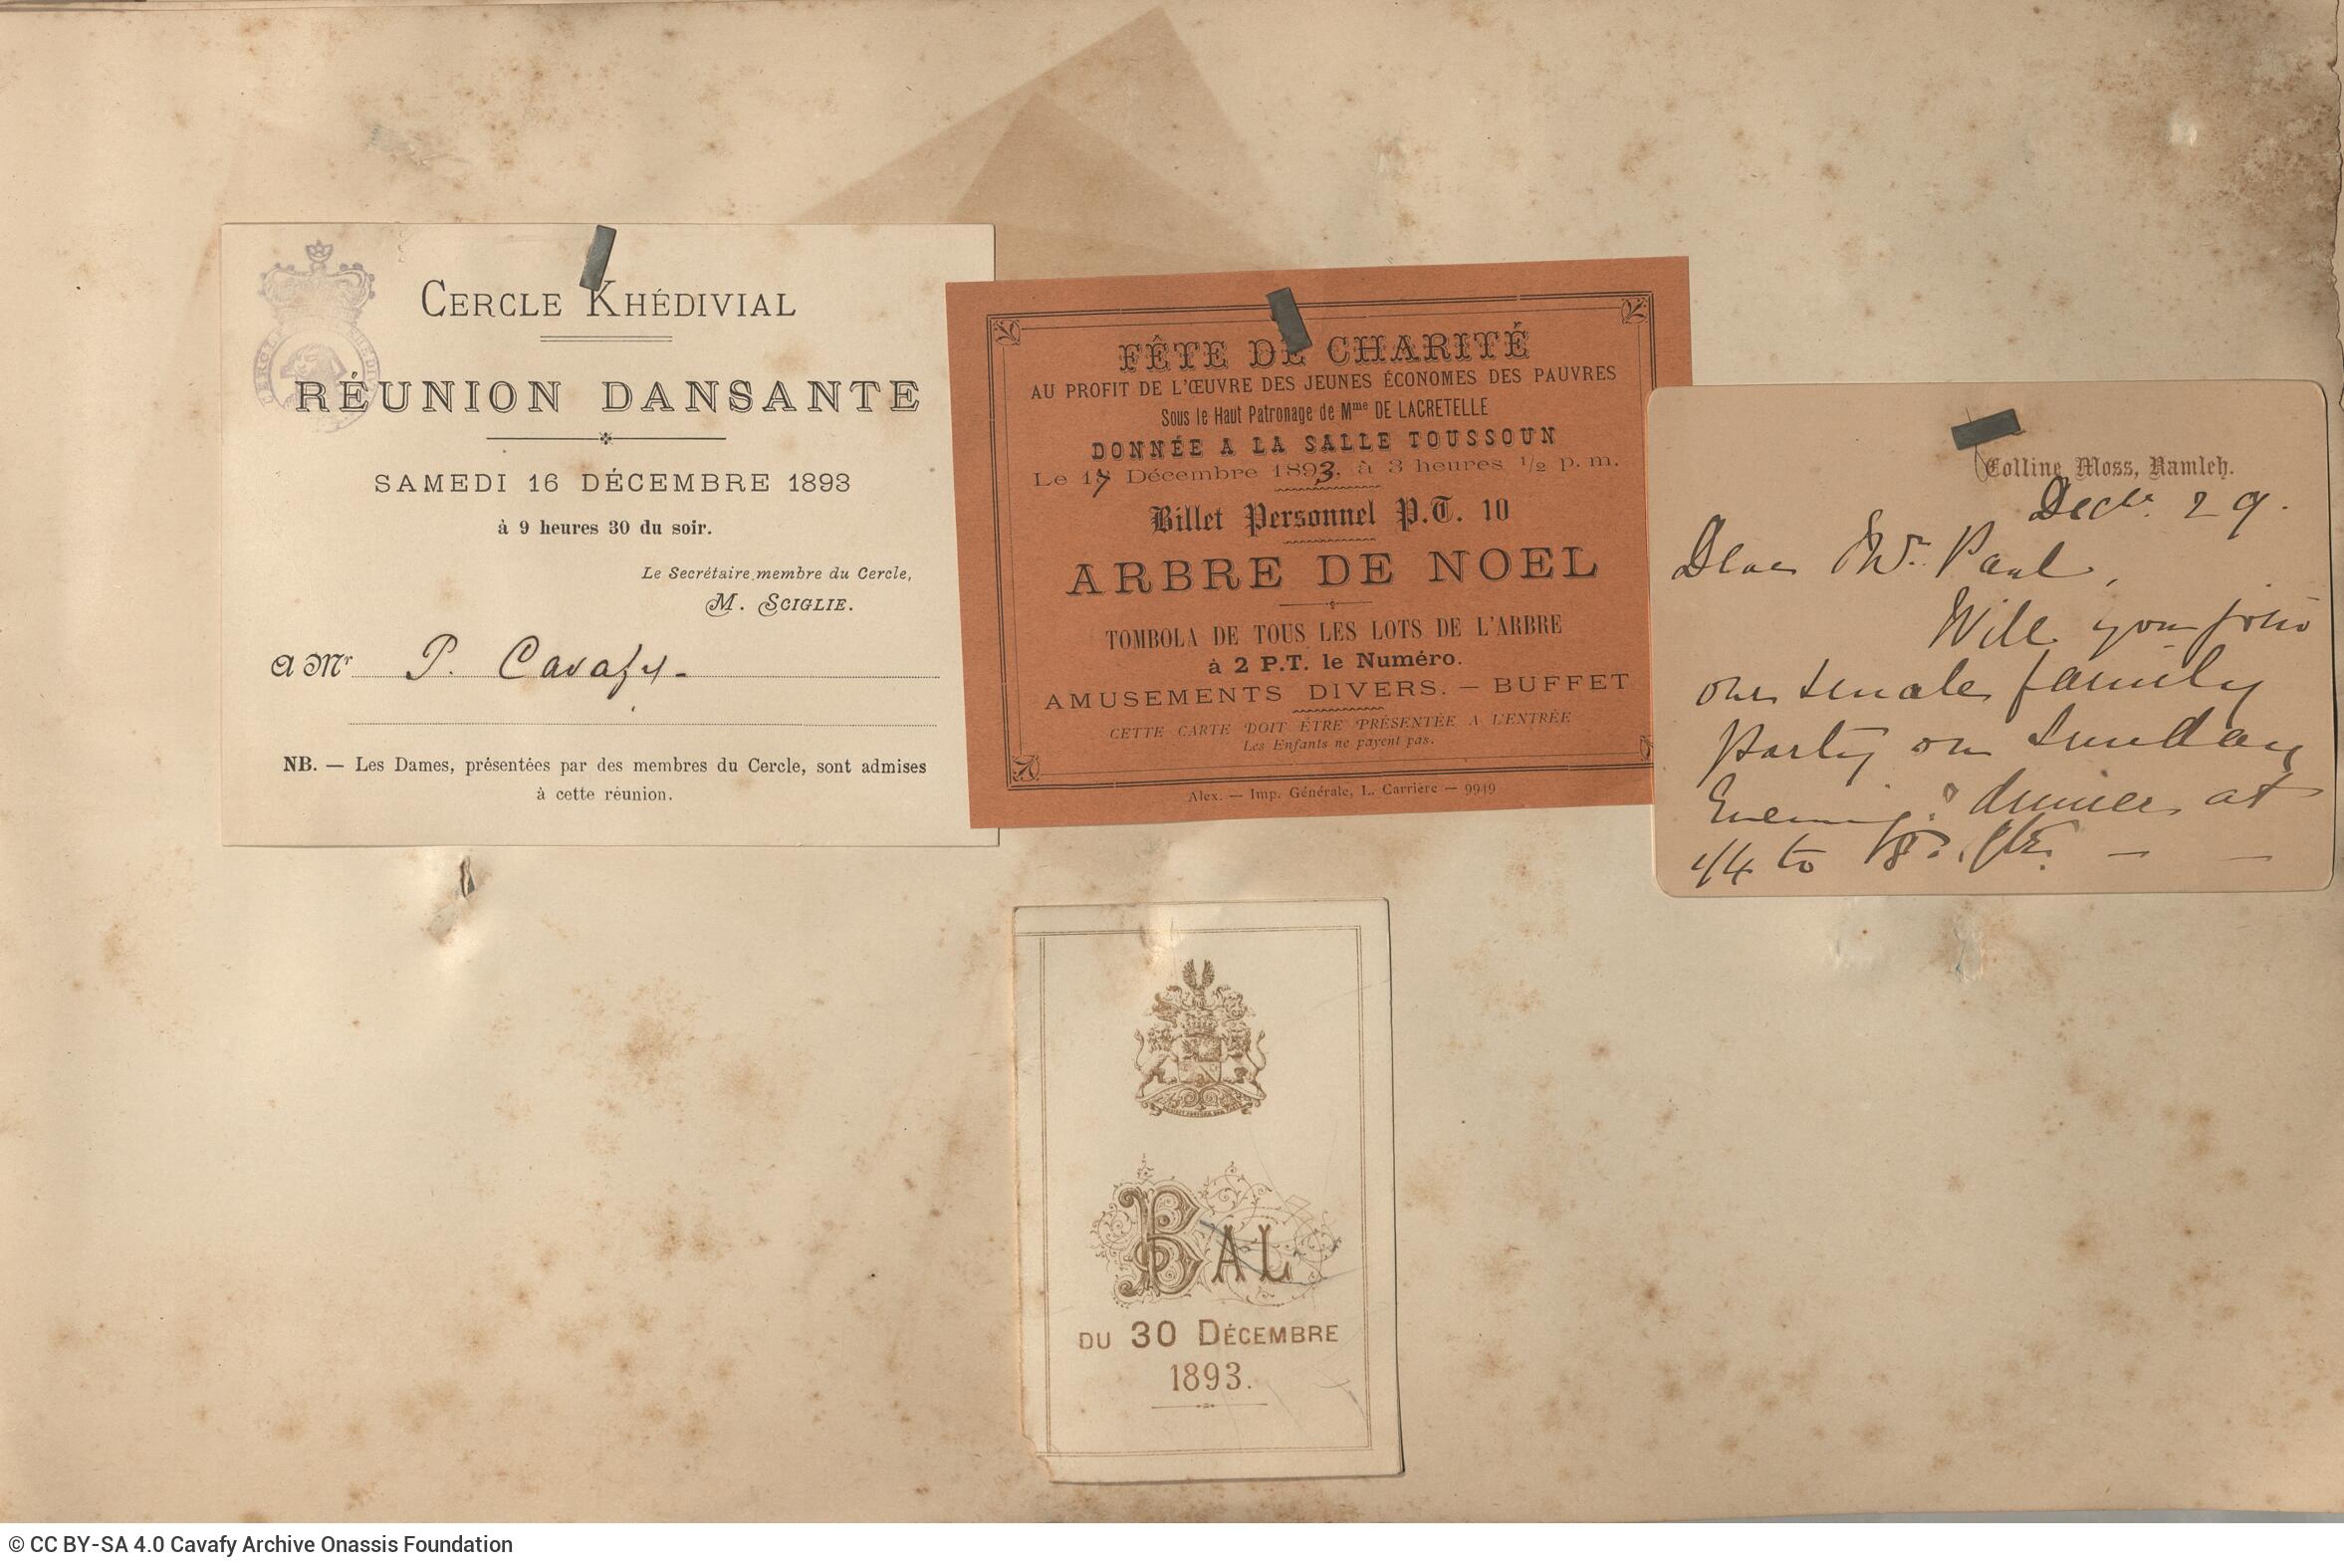 CERCLE KHÉDIVIAL
RÉUNION DANSANTE
SAMEDI 16 DÉCEMBRE 1893
à 9 heures 30 du soir.
Le Secrétaire, membre du Cercle,
M. SCIGLIE.
A Mr P. Cavafy-
NB. — Les Dames, présentées par des membres du Cercle, sont admises
à cette réunion.
FÊTE DE CHARITÉ
AU PROFIT DE L'ŒUVRE DES JEUNES ÉCONOMES DES PAUVRES
Sous le Haut Patronage de Mme DE LACRETELLE
DONNÉE A LA SALLE TOUSSOUN
Le 17 Décembre 1893, à 3 heures 1/2 p. m.
Billet Personnel P.T. 10
ARBRE DE NOEL
TOMBOLA DE TOUS LES LOTS DE L'ARBRE
à 2 P.T. le Numéro.
AMUSEMENTS DIVERS. — BUFFET
CETTE CARTE DOIT ÊTRE PRÉSENTÉE A L'ENTRÉE
Les Enfants ne payent pas.
Alex. — Imp. Générale, L. Carrière — 9949
Colline Moss, Ramleh.
Decr. 29.
Dear Mr. Paul,
Will you join
our family
party on Sunday
Evening? dinner at
1/4 to 8.
BAL
DU 30 DÉCEMBRE
1893.
© CC BY-SA 4.0 Cavafy Archive Onassis Foundation